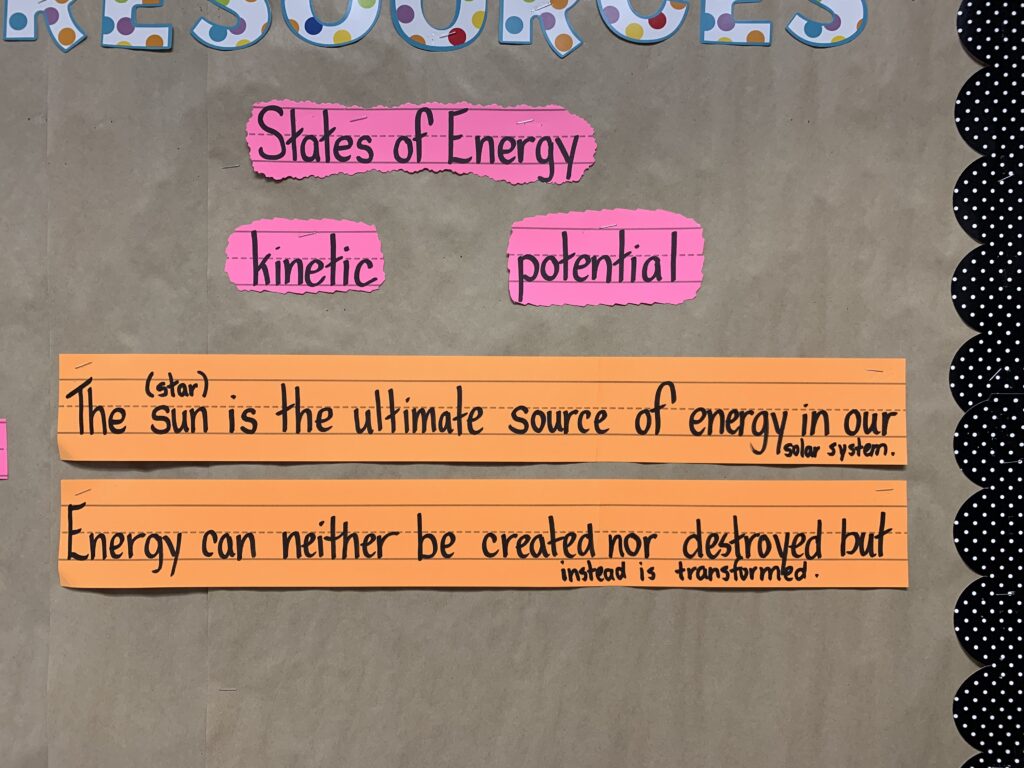 RESOURCES
States of Energy
kinetic
potential
(star)
The sun is the ultimate source of energy in our
solar system.
Energy can neither be created nor destroyed but
instead is transformed.